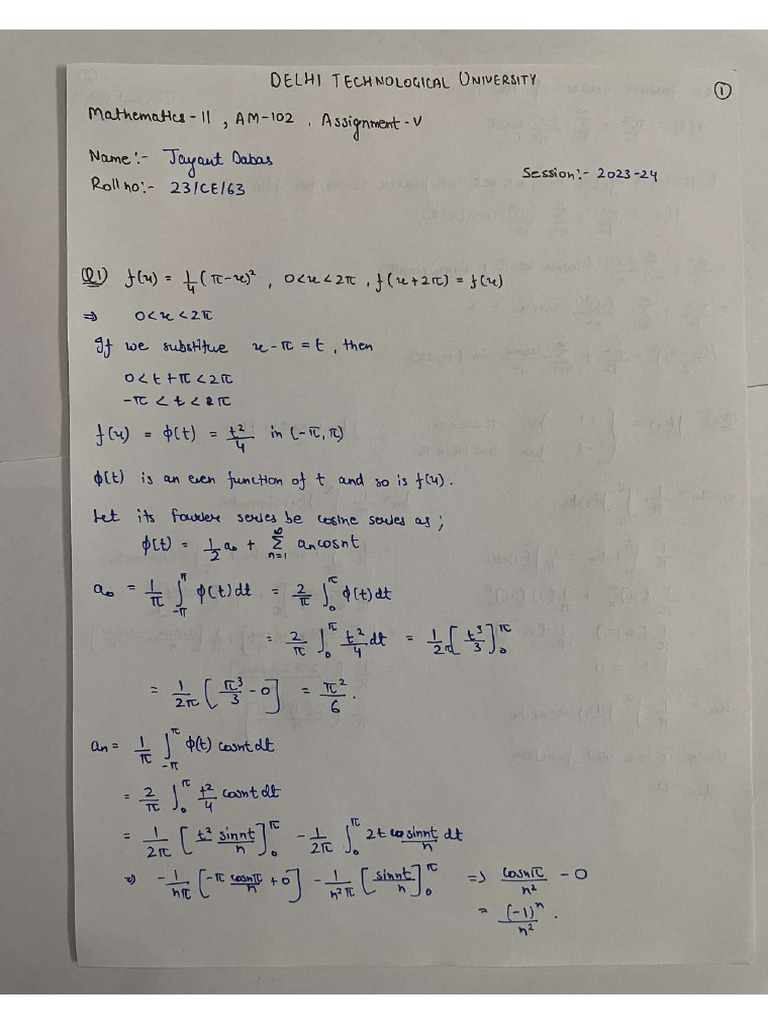 DELHI TECHNOLOGICAL UNIVERSITY
①
Mathematics - II , AM-102 , Assignment - V
Name:- Jayant Dabas
Session:- 2023-24
Roll no:- 23/CE/63
Q1) f(x) = 1/4 (π-x)² , 0<x<2π , f(x+2π) = f(x)
⇒ 0<x<2π
If we substitue x-π = t, then
0<t+π<2π
-π<t<π
f(x) = φ(t) = t²/4 in (-π, π)
φ(t) is an even function of t and so is f(x).
Let its fourier series be cosine series as;
φ(t) = 1/2 a₀ + ∞Σn=1 an cosnt
a₀ = 1/π ∫-π^π φ(t)dt = 2/π ∫0^π φ(t)dt
= 2/π ∫0^π t²/4 dt = 1/2π [t³/3]0^π
= 1/2π [π³/3 - 0] = π²/6 .
an = 1/π ∫-π^π φ(t) cosnt dt
= 2/π ∫0^π t²/4 cosnt dt
= 1/2π [t² sinnt/n]0^π - 1/2π ∫0^π 2t sinnt/n dt
⇒ -1/nπ [-π cosnπ/n + 0] - 1/n²π [sinnt/n]0^π ⇒ cosnπ/n² - 0
= (-1)^n/n² .